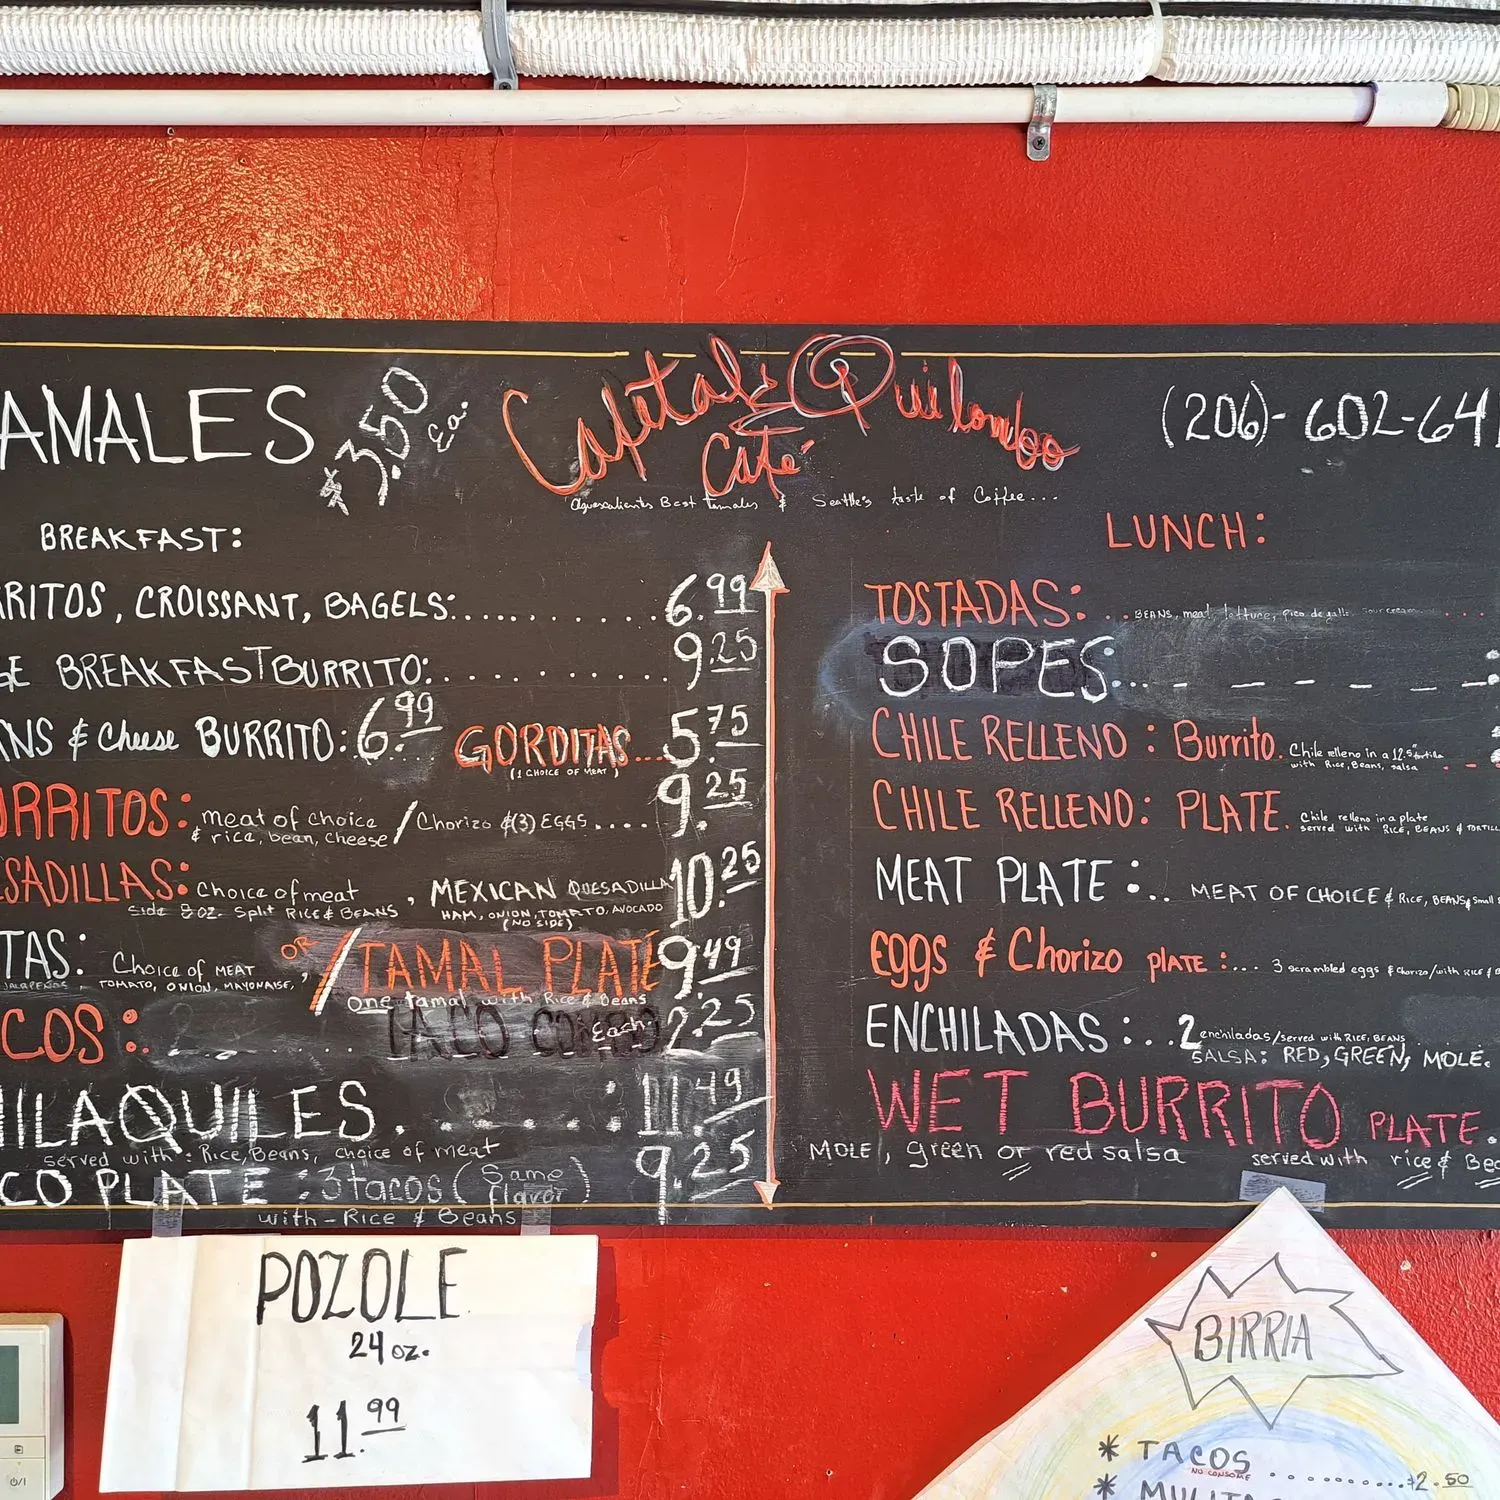 AMALES $3.50 Ea.
Capital Quilombo
Café
Aguascalientes Best tamales & Seattle's taste of Coffee...
(206)-602-64
BREAKFAST:
RITOS, CROISSANT, BAGELS:........... 6.99
GE BREAKFAST BURRITO:........... 9.25
NS & Cheese BURRITO: 6.99 GORDITAS... 5.75
(1 CHOICE OF MEAT)
RRITOS: meat of choice / Chorizo &(3) EGGS.... 9.25
& rice, bean, cheese
SADILLAS: Choice of meat, MEXICAN QUESADILLA 10.25
Side 8 oz. Split RICE & BEANS HAM, ONION, TOMATO, AVOCADO
(NO SIDE)
TAS: Choice of MEAT OR / TAMAL PLATE 9.49
JALAPEÑOS, TOMATO, ONION, MAYONAISE,
One tamal with Rice & Beans
COS: TACO COMBO Each. 2.25
HILAQUILES....: 11.49
served with: Rice, Beans, choice of meat
CO PLATE: 3 tacos (Same flavor) 9.25
with - Rice & Beans
LUNCH:
TOSTADAS: BEANS, meat, lettuce, pico de gallo, sour cream
SOPES:
CHILE RELLENO: Burrito. Chile relleno in a 12.5" tortilla
with Rice, Beans, salsa
CHILE RELLENO: PLATE. Chile relleno in a plate
served with RICE, BEANS & TORTILL
MEAT PLATE:.. MEAT OF CHOICE & RICE, BEANS & Small
Eggs & Chorizo PLATE:... 3 scrambled eggs & chorizo/with RICE &
ENCHILADAS:... 2 enchiladas/served with RICE, BEANS
SALSA: RED, GREEN, MOLE.
WET BURRITO PLATE.
MOLE, green or red salsa served with rice & Bea
POZOLE
24 oz.
11.99
BIRRIA
* TACOS ...........$2.50
NO CONSOME
* MULITAS